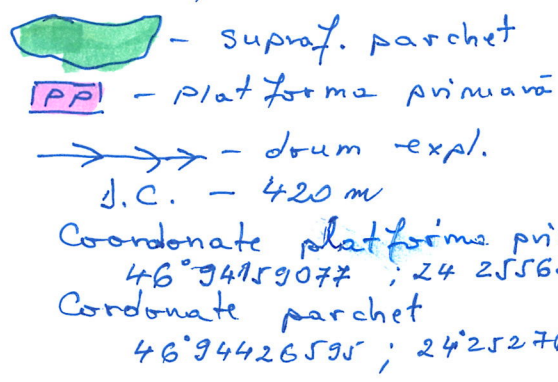 - supraf. parchet
PP - platforma primară
- drum expl.
D.C. - 420 m
Coordonate platforma pri
46°94159077 ; 24 2556
Cordonate parchet
46°94426595 ; 24°2527